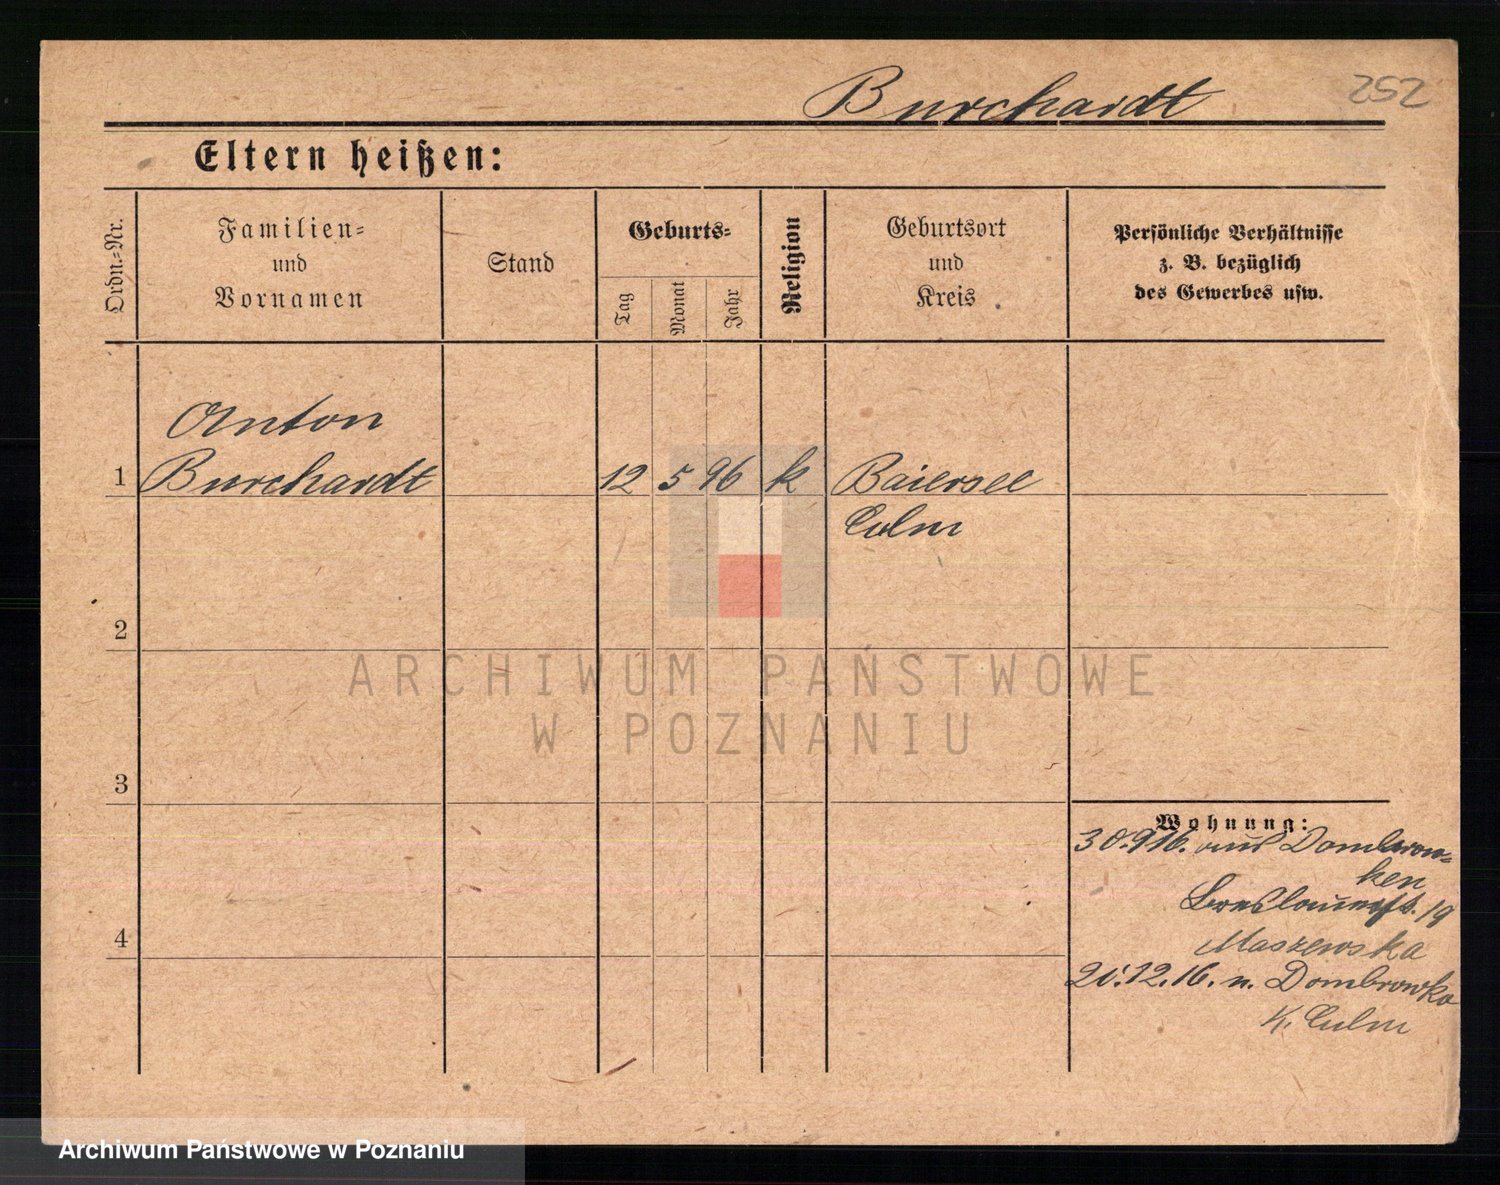 Burchardt
252
Eltern heißen:
Ordn.-Nr.
Familien-
und
Vornamen
Stand
Geburts-
Tag
Monat
Jahr
Religion
Geburtsort
und
Kreis
Persönliche Verhältnisse
z. B. bezüglich
des Gewerbes usw.
Anton
1 Burchardt 12 5 96 k Baiersee
Culm
2
ARCHIWUM PAŃSTWOWE
W POZNANIU
3
Wohnung:
30.9.16. aus Dombrow-
ken
Breslauerst. 19
4
Maszewska
20.12.16. n. Dombrowko
K. Culm
Archiwum Państwowe w Poznaniu